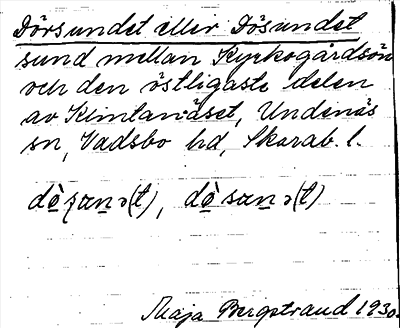 Dörsundet eller Dösundet
sund mellan Kyrkogårdsön
och den östligaste delen
av Kimtanäset, Undenäs
sn, Vadsbo hd, Skarab. l.
dö̀ʂɯnə(t), dö̀sɯnə(t)
Maja Bergstrand 1930.